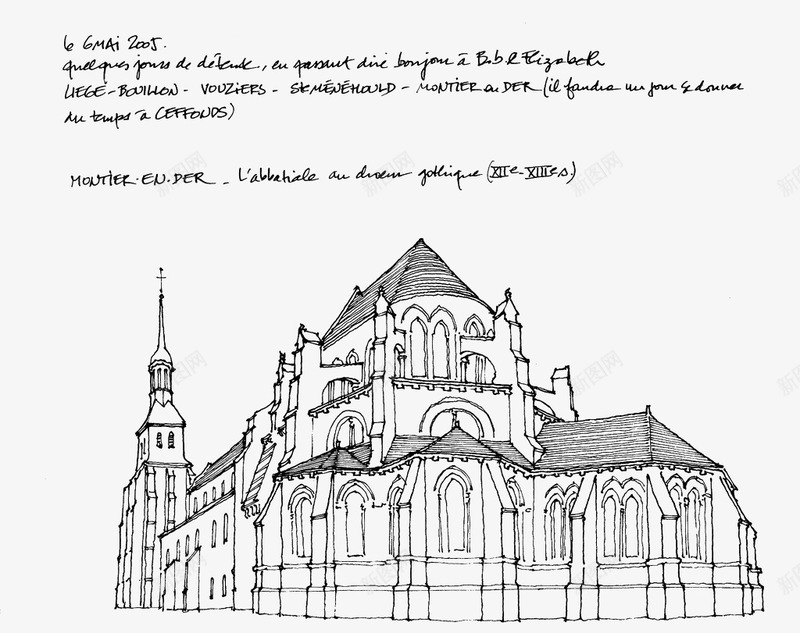 le 6 MAI 2005.
quelques jours de détente, en passant dire bonjour à Bob & Elizabeth
LIEGE - BOUILLON - VOUZIERS - STE MÉNÉHOULD - MONTIER en DER (il faudra un jour donner
du temps à CEFFONDS)
MONTIER.EN.DER _ L'abbatiale au choeur gothique (XIIe-XIIIes.)
新图网